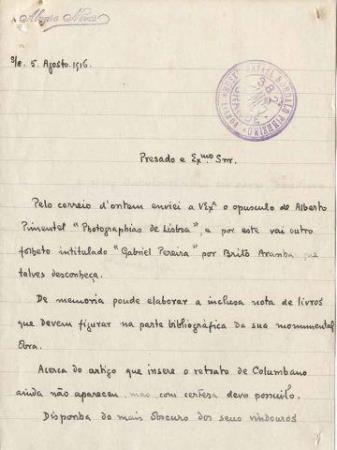 Alvaro Neves
S/c. 5. Agosto. 1916.
MUSEU RAFAEL BORDALO PINHEIRO
Presado e Ex.mo Snr.
Pelo correio d'ontem enviei a VExª o opusculo de Alberto
Pimentel "Photographias de Lisboa", e por este vai outro
folheto intitulado "Gabriel Pereira" por Brito Aranha que
talves desconheça.
De memoria poude elaborar a inclusa nota de livros
que devem figurar na parte bibliográfica da sua monumental
Obra.
Acerca do artigo que insere o retrato de Columbano
ainda não apareceu mas com certesa devo possuilo.
Disponha do mais obscuro dos seus